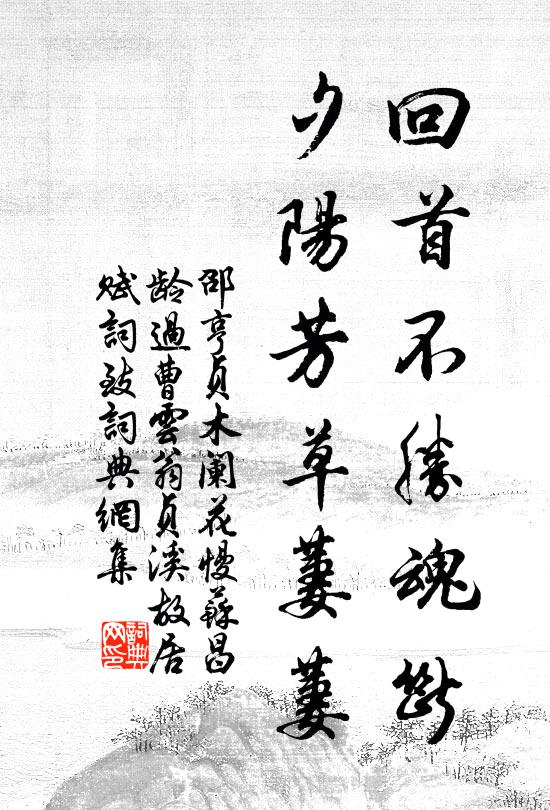 回首不勝魂斷
夕陽芳草萋萋
邵亨貞木蘭花慢蘇昌
齡過曹雲翁貞溪故居
賦詞致詞典網集
詞典
网印